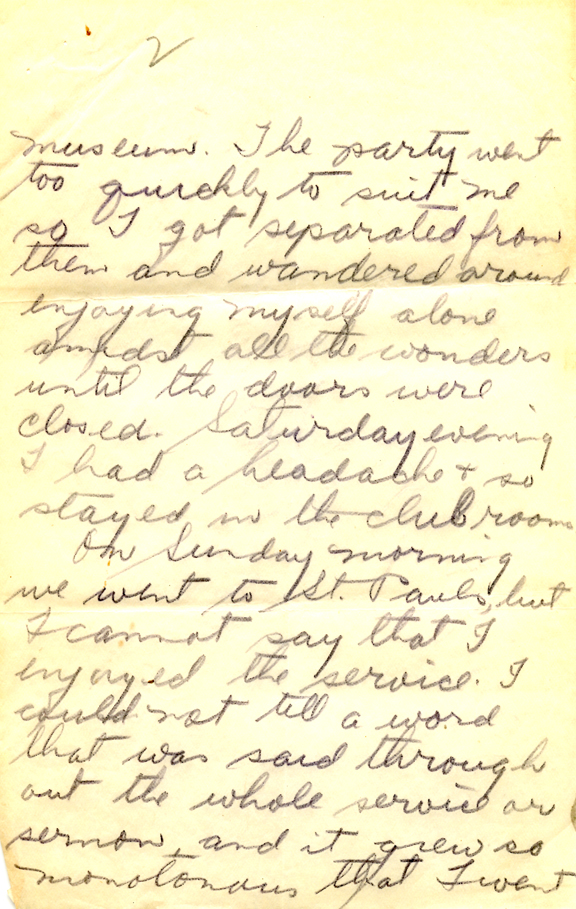 2
museum. The party went
too quickly to suit me
so I got separated from
them and wandered around
enjoying myself alone
amidst all the wonders
until the doors were
closed. Saturday evening
I had a headache + so
stayed in the club rooms
On Sunday morning
we went to St. Pauls, but
I cannot say that I
enjoyed the service. I
could not tell a word
that was said through
out the whole service or
sermon, and it grew so
monotonous that I went